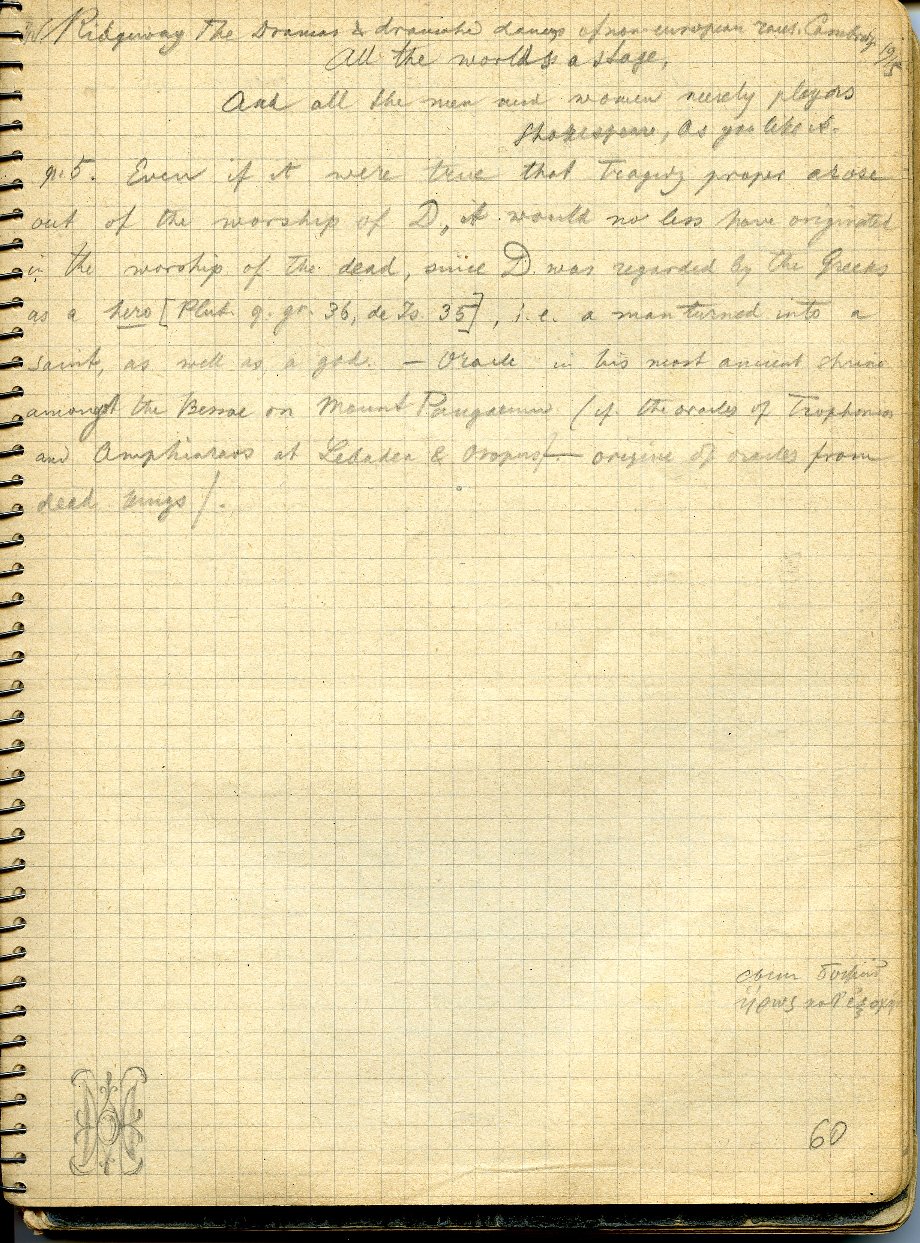 W Ridgeway The Dramas & dramatic dances of non-european races. Cambridge 1915
All the world's a stage,
And all the men and women merely players
Shakespeare, As you like it.
p. 5. Even if it were true that Tragedy proper arose
out of the worship of D, it would no less have originated
in the worship of the dead, since D. was regarded by the Greeks
as a hero [Plut. q. gr. 36, de Is. 35], i.e. a man turned into a
saint, as well as a god. — Oracle in his most ancient shrine
amongst the Bessae on Mount Pangaeum (cf the oracles of Trophonios
and Amphiaraos at Lebadea & Oropus — origine of oracles from
dead kings).
ἥρως κατ' ἐξοχήν
60